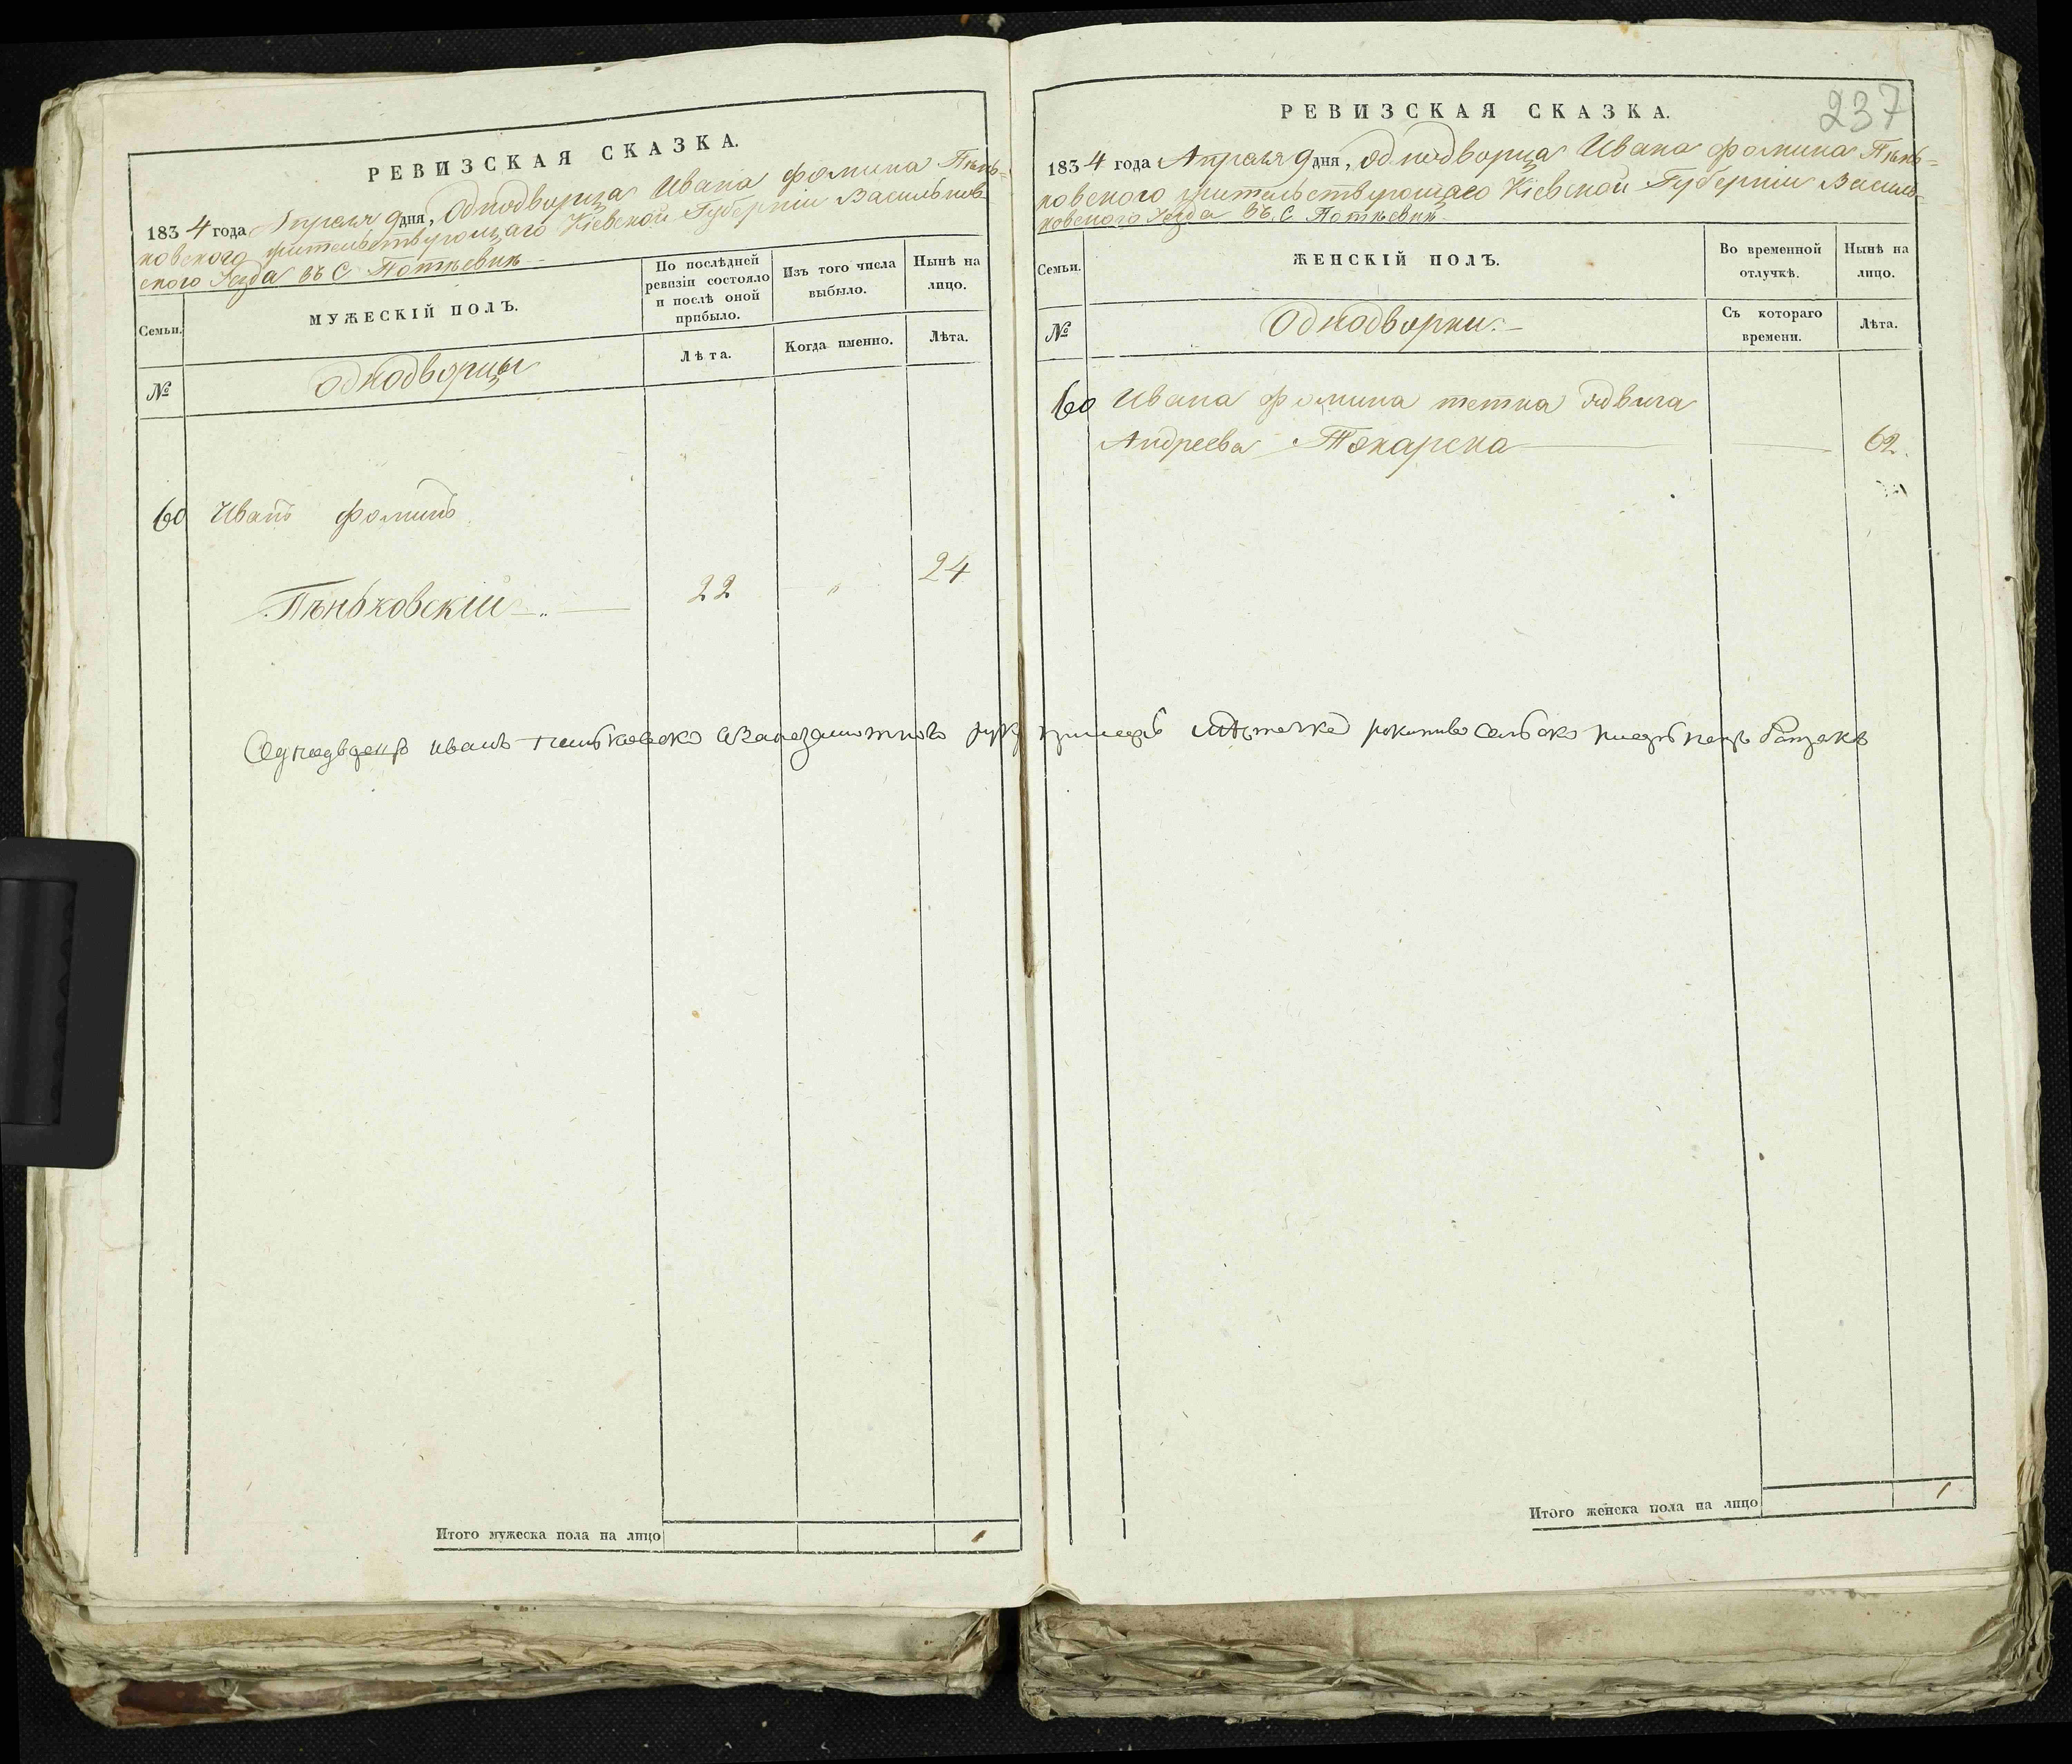 РЕВИЗСКАЯ СКАЗКА.
1834 года Апреля 9 дня, Однодворца Ивана Фомина Пѣнь=
ковского жительствующаго Кіевской Губерніи Васильков-
ского Уезда въ С. Потіевкѣ
Семьи.
МУЖЕСКІЙ ПОЛЪ.
По послѣдней ревизіи состояло и послѣ оной прибыло.
Изъ того числа выбыло.
Нынѣ на лицо.
№
Однодворцы
Лѣта.
Когда именно.
Лѣта.
60 Иванъ Фоминъ
Пѣньковскій 22 " 24
Итого мужеска пола на лицо 1
237
РЕВИЗСКАЯ СКАЗКА.
1834 года Апреля 9 дня, Однодворца Ивана Фомина Пѣнь=
ковского жительствующаго Кіевской Губерніи Василь-
ковского Уезда въ С. Потіевкѣ
Семьи.
ЖЕНСКІЙ ПОЛЪ.
Во временной отлучкѣ.
Нынѣ на лицо.
№
Однодворки.
Съ котораго времени.
Лѣта.
60 Ивана Фомина тетка
Андреева Токарска 62.
Однодворец иванъ руку
Итого женска пола на лицо 1